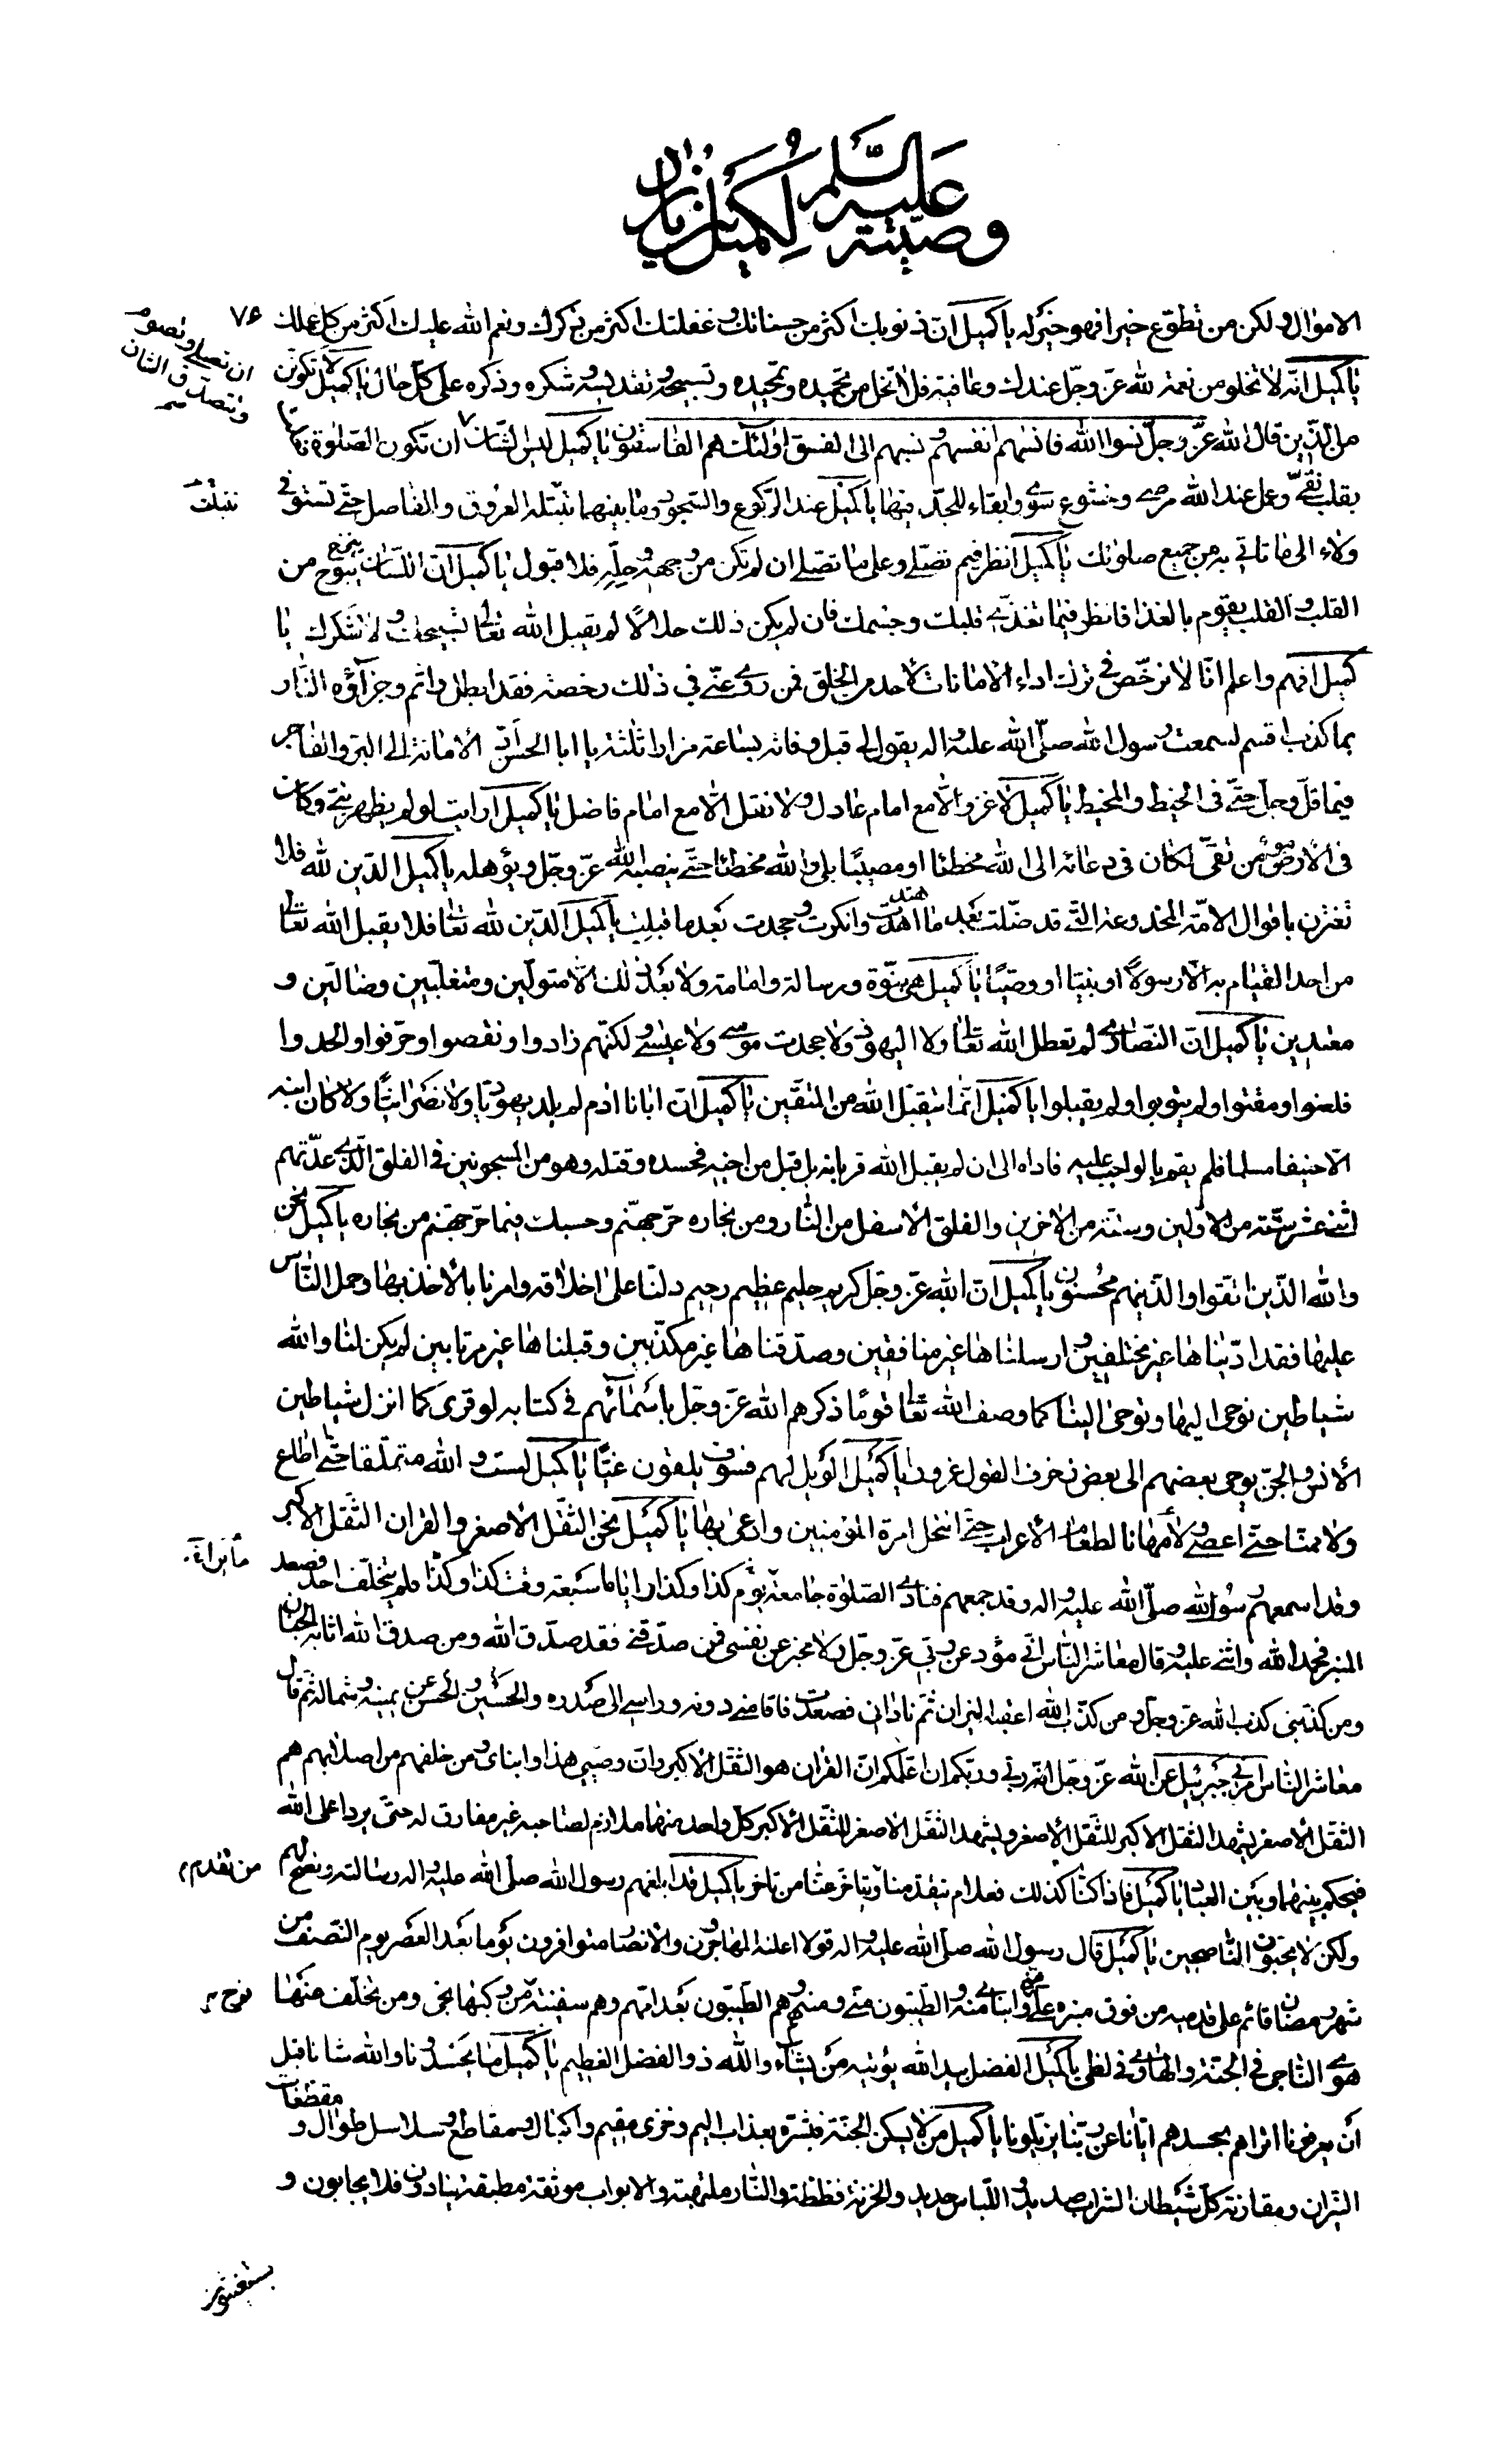 وصيته عليه السلم لكميل بن زياد
٧٤
الاموال ولكن من تطوع خيرا فهو خير له يا كميل ان ذنوبك اكثر من حسناتك وغفلتك اكثر من ذكرك ونعم الله عليك اكثر من كل عملك
يا كميل انه لا تخلو من نعمة لله عز وجل عندك وعافية فلا تخل من تحميده وتمجيده وتسبيحه وتقديسه وشكره وذكره على كل حال يا كميل لا تكونن
من الذين قال الله عز وجل نسوا الله فانسيهم انفسهم ونسبهم الى الفسق اولئك هم الفاسقون يا كميل ليس الشان ان تكون الصلوة
ان تصلي وتصوم وتتصدق الشان
بقلب نقي وعمل عند الله مرضي وخشوع سوي وابقاء للجد فيها يا كميل عند الركوع والسجود وما بينهما تبتلت العروق والمفاصل حتى تستوفي
تبتلت
ولاء الى ما تاتي به من جميع صلوتك يا كميل انظر فيم تصلي وعلى ما تصلي ان لم تكن من وجهه وحله فلا قبول يا كميل ان اللسان يبوح من
ينزع
القلب والقلب يقوم بالغذا فانظر فيما تغذي قلبك وجسمك فان لم يكن ذلك حلالا لم يقبل الله تعالى تسبيحك ولا شكرك يا
كميل افهم واعلم انا لا نرخص في ترك اداء الامانات لاحد من الخلق فمن روى عني في ذلك رخصة فقد ابطل واثم وجزاؤه النار
بما كذب اقسم لسمعت رسول الله صلى الله عليه واله يقول لي قبل وفاته بساعة مرارا ثلثة يا ابا الحسن اد الامانة الى البر والفاجر
فيما قل وجل حتى في الخيط والمخيط يا كميل لا غزو الا مع امام عادل ولا نقل الا مع امام فاضل يا كميل ارايت لو لم يظهر نبي وكان
في الارض مؤمن تقي لكان في دعائه الى الله مخطئا او مصيبا بلى والله مخطئا حتى ينصبه الله عز وجل ويؤهله يا كميل الدين لله فلا
تغترن باقوال الامة المخدوعة التي قد ضلت بعد ما اهتدت وانكرت وجحدت بعد ما قبلت يا كميل الدين لله تعالى فلا يقبل الله تعالى
من احد القيام به الا رسولا او نبيا او وصيا يا كميل هي نبوة ورسالة وامامة ولا بعد ذلك الا متولين ومتغلبين وضالين و
معتدين يا كميل ان النصارى لم تعطل الله تعالى ولا اليهود ولا جحدت موسى ولا عيسى ولكنهم زادوا ونقصوا وحرفوا والحدوا
فلعنوا ومقتوا ولم يتوبوا ولم يقبلوا يا كميل انما يتقبل الله من المتقين يا كميل ان ابانا ادم لم يلد يهوديا ولا نصرانيا ولا كان ابنه
الا حنيفا مسلما فلم يقم بالواجب عليه فاداه الى ان لم يقبل الله قربانه بل قبل من اخيه فحسده وقتله وهو من المسجونين في الفلق الذي عدتهم
اثني عشر ستة من الاولين وستة من الاخرين والفلق الاسفل من النار ومن بخاره حر جهنم وحسبك فيما حر جهنم من بخاره يا كميل نحن
والله الذين اتقوا والذين هم محسنون يا كميل ان الله عز وجل كريم حليم عظيم رحيم دلنا على اخلاقه وامرنا بالاخذ بها وحمل الناس
عليها فقد اديناها غير مختلفين وارسلناها غير منافقين وصدقناها غير مكذبين وقبلناها غير مرتابين لم يكن لنا والله
شياطين نوحي اليها وتوحي الينا كما وصف الله تعالى قوما ذكرهم الله عز وجل باسمائهم في كتابه لو قرئ كما انزل شياطين
الانس والجن يوحي بعضهم الى بعض زخرف القول غرورا يا كميل الويل لهم فسوف يلقون غيا يا كميل لست والله متملقا حتى اطاع
ولا ممنا حتى اعصي ولا مهانا لطغام الاعراب حتى انتحل امرة المؤمنين وادعى بها يا كميل نحن الثقل الاصغر والقران الثقل الاكبر
وقد اسمعهم رسول الله صلى الله عليه واله وقد جمعهم فنادى الصلوة جامعة يوم كذا وكذا واياما سبعة وقت كذا وكذا فلم يتخلف احد فصعد
المنبر فحمد الله واثنى عليه وقال معاشر الناس اني مؤد عن ربي عز وجل ولا مخبر عن نفسي فمن صدقني فقد صدق الله ومن صدق الله اثابه الجنان
ومن كذبني كذب الله عز وجل ومن كذب الله اعقبه النيران ثم ناداني فصعدت فاقامني دونه وراسي الى صدره والحسن والحسين عن يمينه وشماله ثم قال
معاشر الناس امرني جبرئيل عن الله عز وجل انه ربي وربكم ان اعلمكم ان القران هو الثقل الاكبر وان وصيي هذا وابناي ومن خلفهم من اصلابهم هم
الثقل الاصغر يشهد الثقل الاكبر للثقل الاصغر ويشهد الثقل الاصغر للثقل الاكبر كل واحد منهما ملازم لصاحبه غير مفارق له حتى يردا على الله
فيحكم بينهما وبين العباد يا كميل فاذا كنا كذلك فعلام يتقدمنا ويتاخر عنا من تاخر يا كميل قد ابلغهم رسول الله صلى الله عليه واله رسالته ونصح لهم
من تقدم
ولكن لا يحبون الناصحين يا كميل قال رسول الله صلى الله عليه واله قولا اعلنه والمهاجرون والانصار متوافرون يوما بعد العصر يوم النصف من
شهر رمضان قائم على قدميه من فوق منبره علي وابناي منه والطيبون مني ومنهم وهم الطيبون بعد امهم وهم سفينة من ركبها نجى ومن تخلف عنها
نوح
هوى الناجي في الجنة والهاوي في لظى يا كميل الفضل بيد الله يؤتيه من يشاء والله ذو الفضل العظيم يا كميل ما يحسدونا والله شانا قبل
ان يعرفونا اتراهم بحسدهم ايانا عن ربنا يزيلونا يا كميل من لا يسكن الجنة فبشره بعذاب اليم وخزي مقيم واكبال ومقاطع وسلاسل طوال و
مقطعات
النيران ومقارنة كل شيطان الشراب صديد واللباس حديد والخزنة فظظة والنار ملتهبة والابواب موثقة مطبقة ينادون فلا يجابون و
يستغيثون